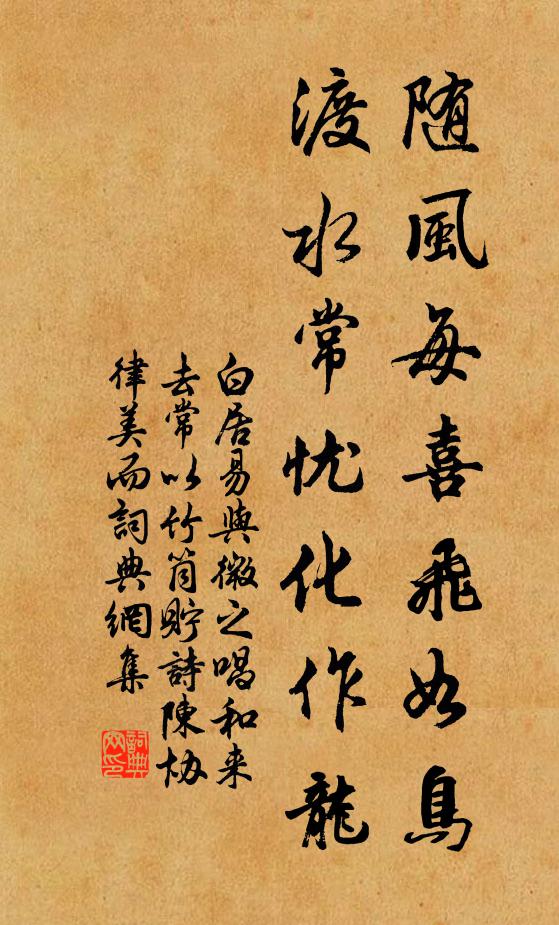 随風每喜飛如鳥
渡水常忧化作龍
白居易與微之唱和来
去常以竹筒貯詩陳协
律美而詞典網集
詞典
网印